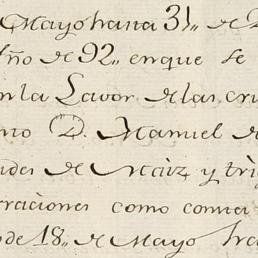 Mayo hasta 31,, de D
Año de 92,, en que se
en la Lavor de las
mo D. Manuel de
des de Maiz y tri
rraciones como
o de 18,, de Mayo ha